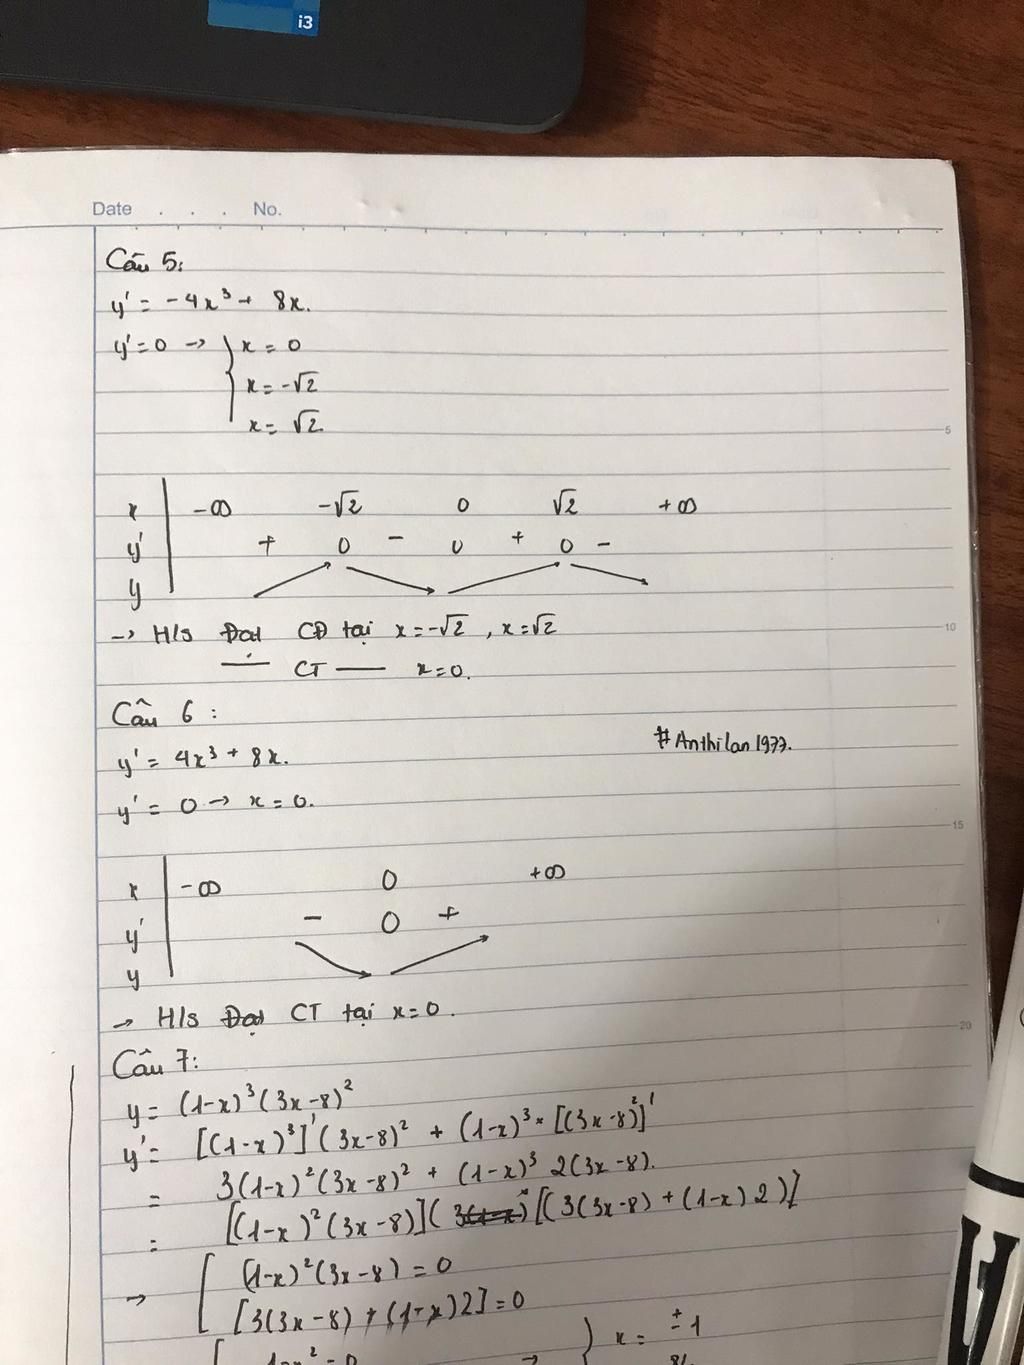 i3
Date . . . No.
Câu 5:
y' = -4x³ + 8x.
y' = 0 → { x = 0
x = -√2
x = √2
5
x | -∞ -√2 0 √2 +∞
y' | + 0 - 0 + 0 -
y
→ H/s Đạt CĐ tại x = -√2 , x = √2
10
— CT — x = 0.
Câu 6 :
#Anthilan1977.
y' = 4x³ + 8x.
y' = 0 → x = 0.
15
x | -∞ 0 +∞
y' | - 0 +
y
→ H/s Đạt CT tại x = 0.
20
Câu 7:
y = (1-x)³(3x-8)²
y' = [(1-x)³]'(3x-8)² + (1-x)³ × [(3x-8)²]'
= 3(1-x)²(3x-8)² + (1-x)³ 2(3x-8).
= [(1-x)²(3x-8)]( [(3(3x-8) + (1-x)2)]
→ [ (1-x)²(3x-8) = 0
[3(3x-8) + (1-x)2] = 0
→ } x = ±1